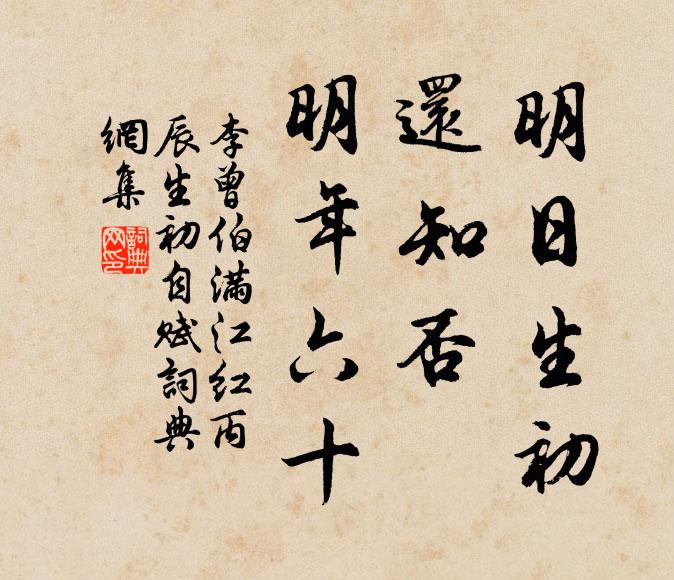 明日生初
還知否
明年六十
李曾伯滿江紅丙
辰生初自賦詞典
網集
詞典
网印